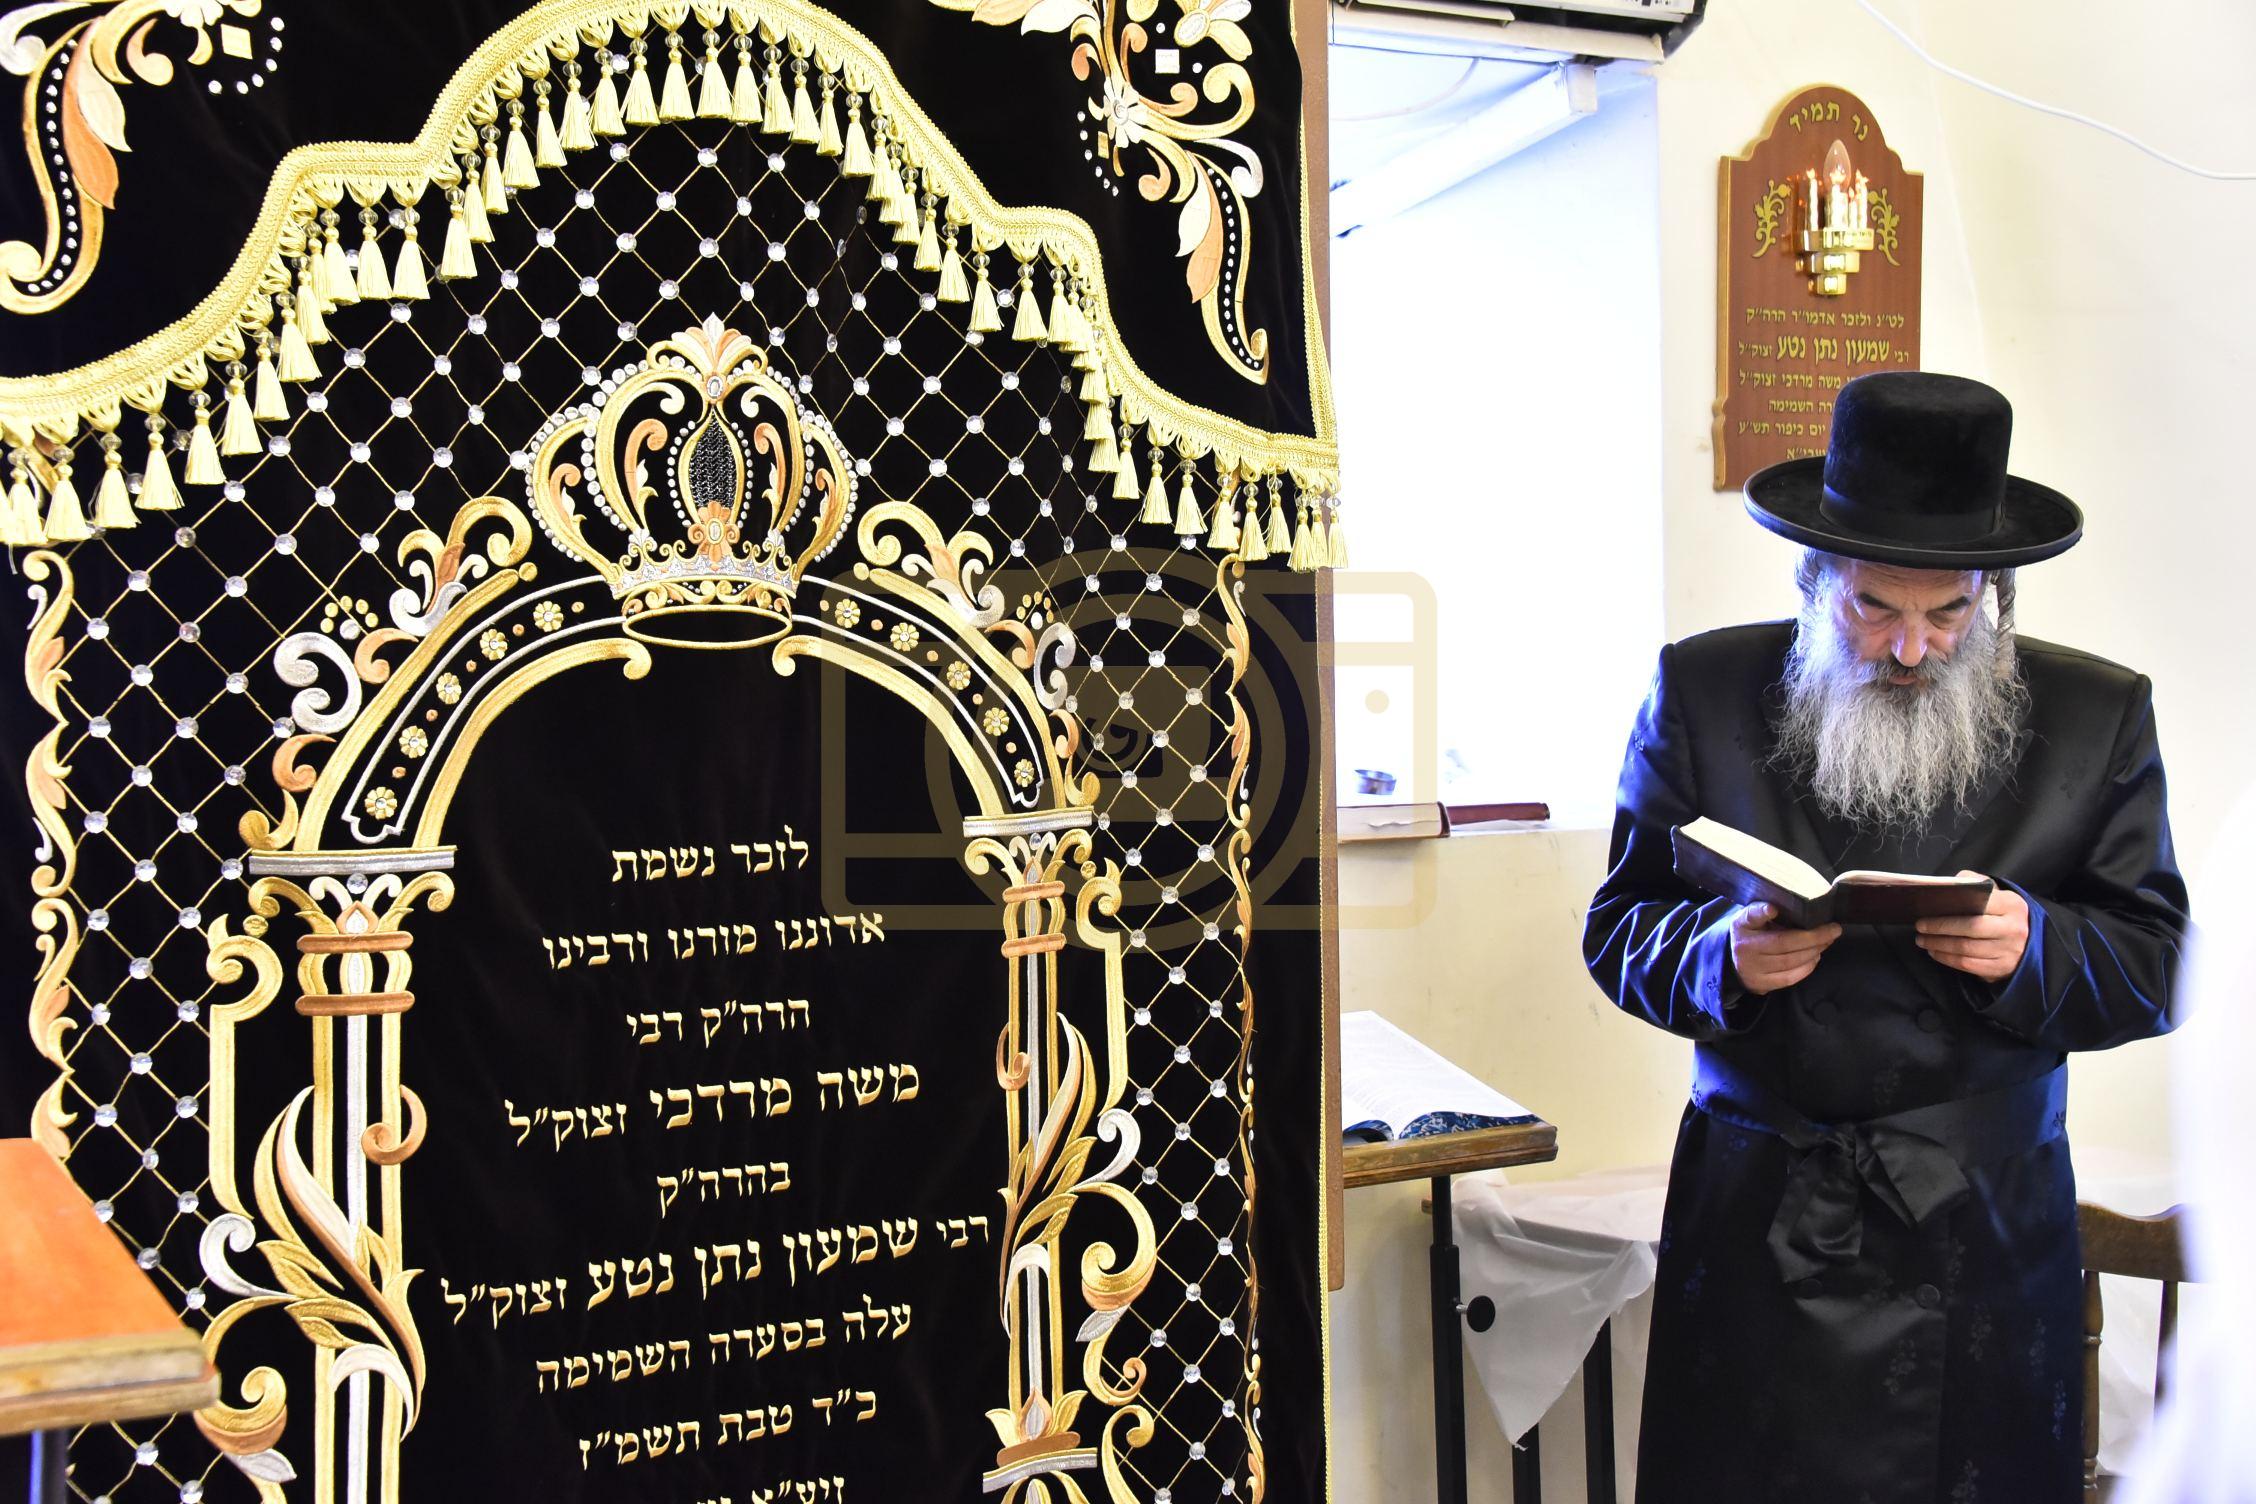 לזכר נשמת
אדוננו מורנו ורבינו
הרה״ק רבי
משה מרדכי זצוק״ל
בהרה״ק
רבי שמעון נתן נטע זצוק״ל
עלה בסערה השמימה
כ״ד טבת תשמ״ז
זיע״א
נר תמיד
לט״נ ולזכר אדמו״ר הרה״ק
רבי שמעון נתן נטע זצוק״ל
משה מרדכי זצוק״ל
השמימה
יום כיפור תש״ע